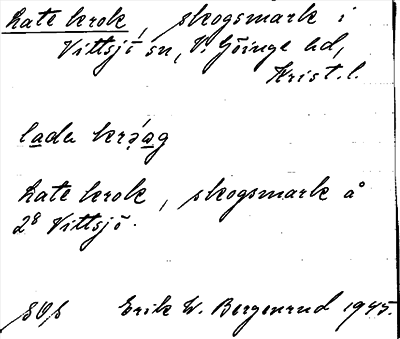 Late krok, skogsmark i
Vittsjö sn, V. Göinge hd,
Krist. l.
lada krág
Late krok, skogsmark å
2⁸ Vittsjö.
Erik W. Bergenrud 1945.